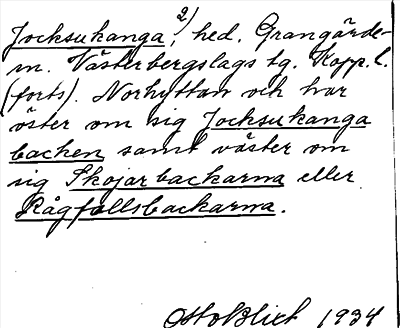 Jocksukanga, 2) hed. Grangärde-
m. Västerbergslags tg. Kopp. l.
(forts). Norhyttan och har
öster om sig Jocksukanga
backen samt väster om
sig Skojarbackarna eller
Rågfallsbackarna.
Otto Blixt 1934